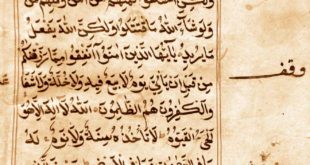 ولو شآء الله ما اقتتلوا ولكن الله يفعل
ما يريد يايها الذين امنوا انفقوا مما رزقنكم
من قبل ان ياتي يوم لا بيع فيه ولا خلة ولا شفا
عة
والكفرون هم الظلمون الله لا اله الا هو
الحي القيوم لا تاخذه سنة ولا نوم له
وقف